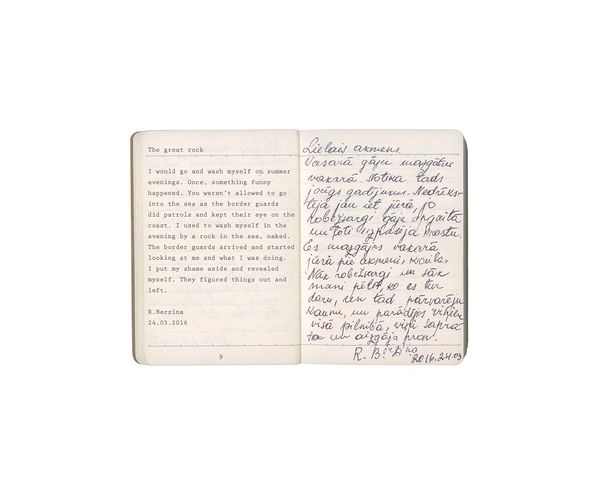 The great rock
I would go and wash myself on summer
evenings. Once, something funny
happened. You weren't allowed to go
into the sea as the border guards
did patrols and kept their eye on the
coast. I used to wash myself in the
evening by a rock in the sea, naked.
The border guards arrived and started
looking at me and what I was doing.
I put my shame aside and revealed
myself. They figured things out and
left.
R.Berzina
24.03.2016
9
Lielais akmens.
Vasarā gāju mazgāties
vakarā. Notika tāds
jocīgs gadījums. Nedrīks-
tēja jau iet jūrā, jo
robežsargi gāja apgaitā
un ļoti izprasīja krastu.
Es mazgājos vakarā
jūrā pie akmeņi, kaila.
Nāk robežsargi un sāk
mani pētīt, ko es tur
daru, un tad pārvarēju
kaunu, un parādījos viņiem
visā pilnībā, viņi sapra-
ta un aizgāja prom.
R. Bērziņa
2016.24.03